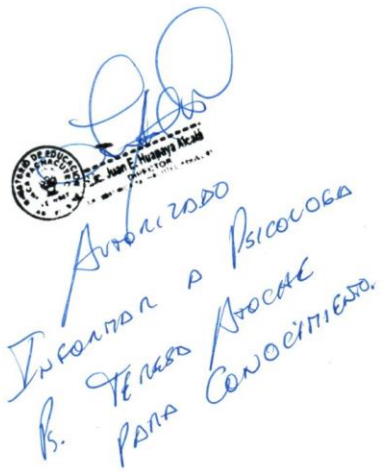 MINISTERIO DE EDUCACIÓN
Lic. Juan E. Huapaya Alcalá
DIRECTOR
AUTORIZADO
INFORMAR A PSICOLOGA
Ps. TERESA ATOCHE
PARA CONOCIMIENTO.